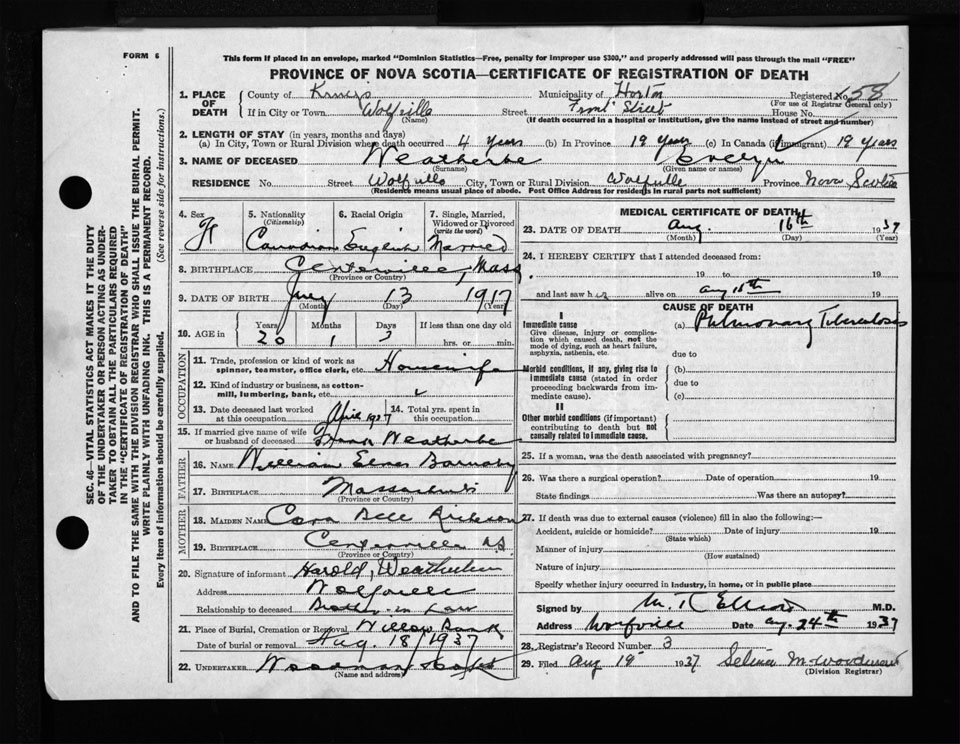 FORM 6
This form if placed in an envelope, marked "Dominion Statistics—Free, penalty for improper use $300," and properly addressed will pass through the mail "FREE"
PROVINCE OF NOVA SCOTIA—CERTIFICATE OF REGISTRATION OF DEATH
1. PLACE OF DEATH
County of Kings Municipality of Horton Registered No. 58
(For use of Registrar General only)
If in City or Town Wolfville Street Front Street House No.
(Name) (If death occurred in a hospital or institution, give the name instead of street and number)
2. LENGTH OF STAY (in years, months and days)
(a) In City, Town or Rural Division where death occurred 4 years (b) In Province 19 years (c) In Canada (if immigrant) 19 years
3. NAME OF DECEASED Weatherbe Evelyn
(Surname) (Given name or names)
RESIDENCE No. Street Wolfville City, Town or Rural Division Wolfville Province Nova Scotia
(Residents means usual place of abode. Post Office Address for residents in rural parts not sufficient)
4. Sex
F
5. Nationality
(Citizenship)
Canadian
6. Racial Origin
English
7. Single, Married, Widowed or Divorced
(write the word)
Married
8. BIRTHPLACE Centerville, Mass
(Province or Country)
9. DATE OF BIRTH July 13 1917
(Month) (Day) (Year)
10. AGE in
Years Months Days If less than one day old
20 1 3 hrs. or min.
OCCUPATION
11. Trade, profession or kind of work as spinner, teamster, office clerk, etc. Housewife
12. Kind of industry or business, as cotton-mill, lumbering, bank, etc.
13. Date deceased last worked at this occupation April 1937
14. Total yrs. spent in this occupation
15. If married give name of wife or husband of deceased Frank Weatherbe
FATHER
16. NAME William Barnaby
17. BIRTHPLACE Massachusetts
(Province or Country)
MOTHER
18. MAIDEN NAME Cora Bell
19. BIRTHPLACE Centreville N.S
(Province or Country)
20. Signature of informant Harold Weatherbe
Address Wolfville
Relationship to deceased Brother in Law
21. Place of Burial, Cremation or Removal Willow Bank
Date of burial or removal Aug. 18/1937
22. UNDERTAKER Woodman
(Name and address)
MEDICAL CERTIFICATE OF DEATH
23. DATE OF DEATH Aug. 16th 1937
(Month) (Day) (Year)
24. I HEREBY CERTIFY that I attended deceased from:
19 to 19
and last saw her alive on Aug 16th 19
CAUSE OF DEATH
I
Immediate cause
Give disease, injury or complication which caused death, not the mode of dying, such as heart failure, asphyxia, asthenia, etc.
(a) Pulmonary Tuberculosis
due to
Morbid conditions, if any, giving rise to immediate cause (stated in order proceeding backwards from immediate cause).
(b)
due to
(c)
II
Other morbid conditions (if important) contributing to death but not causally related to immediate cause.
25. If a woman, was the death associated with pregnancy?
26. Was there a surgical operation? Date of operation 19
State findings Was there an autopsy?
27. If death was due to external causes (violence) fill in also the following:—
Accident, suicide or homicide? Date of injury 19
(State which)
Manner of injury
(How sustained)
Nature of injury
Specify whether injury occurred in industry, in home, or in public place
Signed by M. R. Elliott M.D.
Address Wolfville Date Aug. 24th 1937
28. Registrar's Record Number 3
29. Filed Aug 19 1937 Selina M. Woodman
(Division Registrar)
SEC. 46—VITAL STATISTICS ACT MAKES IT THE DUTY
OF THE UNDERTAKER OR PERSON ACTING AS UNDER-
TAKER TO OBTAIN ALL THE PARTICULARS REQUIRED
IN THE "CERTIFICATE OF REGISTRATION OF DEATH"
AND TO FILE THE SAME WITH THE DIVISION REGISTRAR WHO SHALL ISSUE THE BURIAL PERMIT.
WRITE PLAINLY WITH UNFADING INK. THIS IS A PERMANENT RECORD.
Every item of information should be carefully supplied. (See reverse side for instructions.)